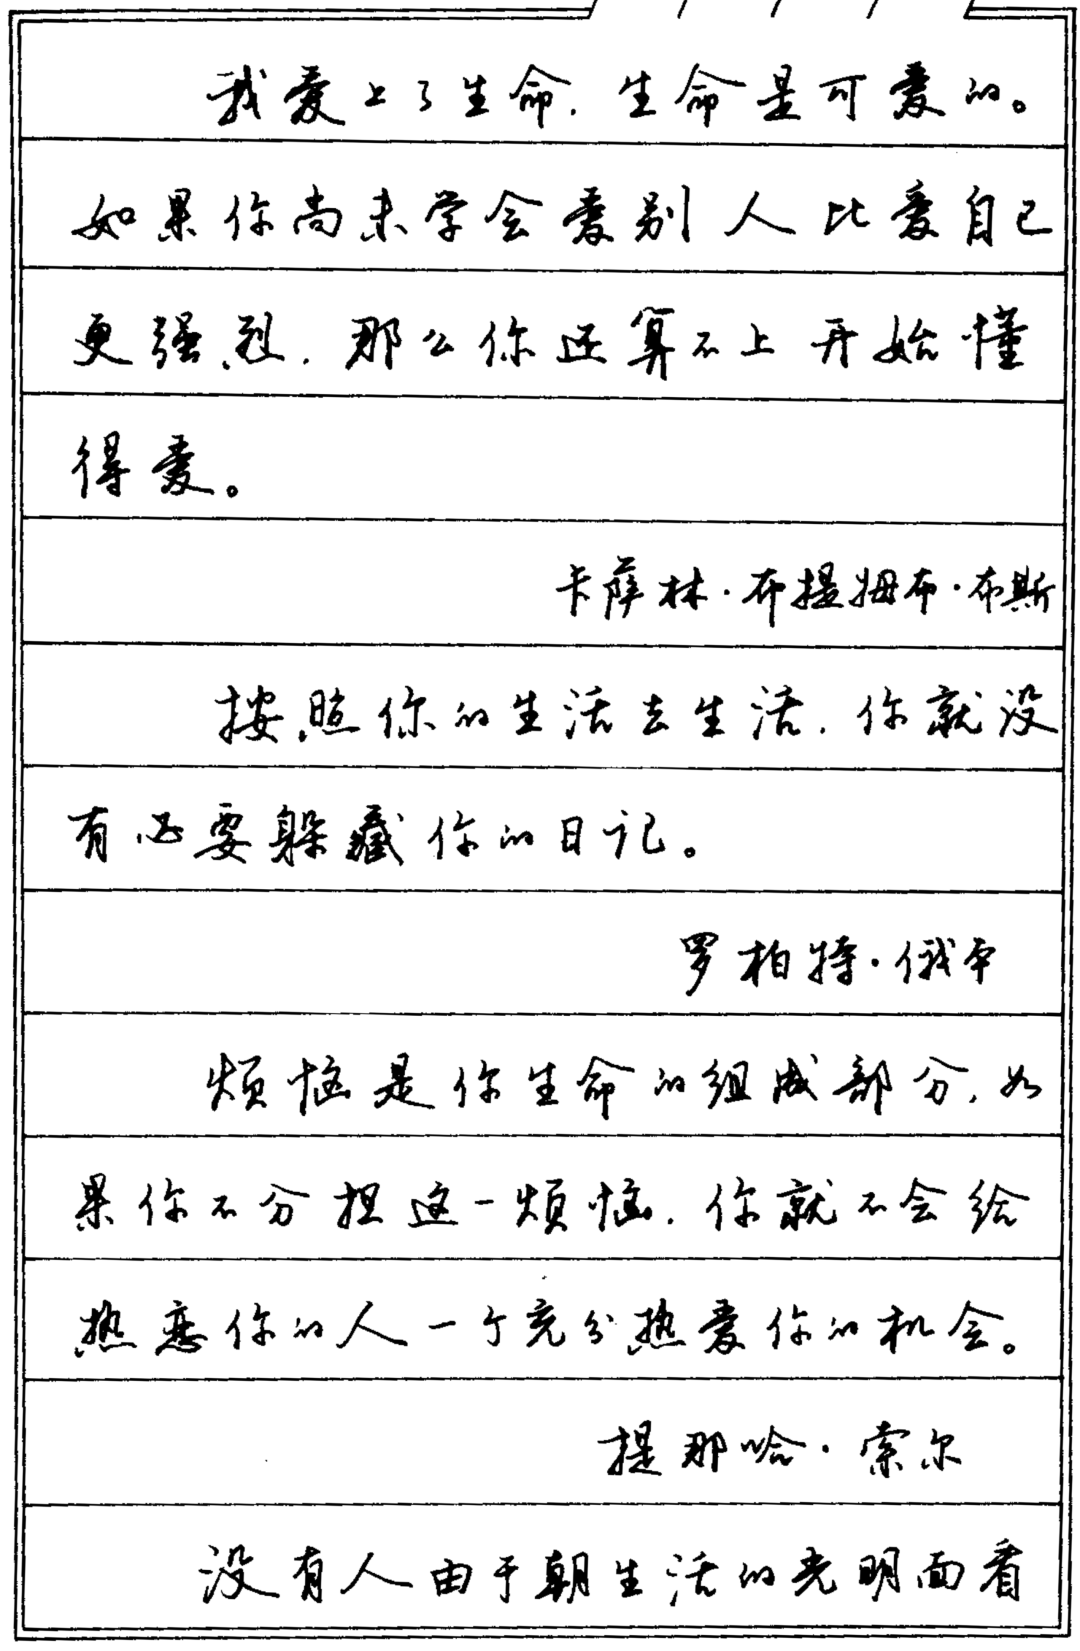 我爱上了生命，生命是可爱的。
如果你尚未学会爱别人比爱自己
更强烈，那么你还算不上开始懂
得爱。
卡萨林·布提姆布·布斯
按照你的生活去生活，你就没
有必要躲藏你的日记。
罗柏特·俄本
烦恼是你生命的组成部分，如
果你不分担这一烦恼，你就不会给
热恋你的人一个充分热爱你的机会。
提那哈·索尔
没有人由于朝生活的光明面看